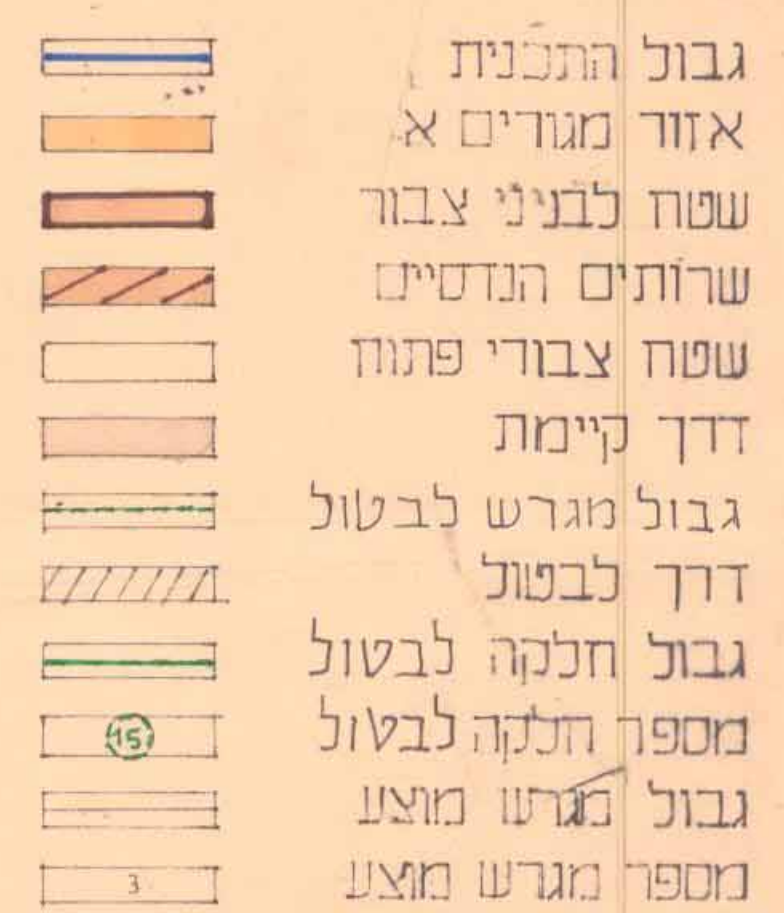 גבול התכנית
אזור מגורים א
שטח לבניני צבור
שרותים הנדסיים
שטח צבורי פתוח
דרך קיימת
גבול מגרש לבטול
דרך לבטול
גבול חלקה לבטול
מספר חלקה לבטול 15
גבול מגרש מוצע
מספר מגרש מוצע 3